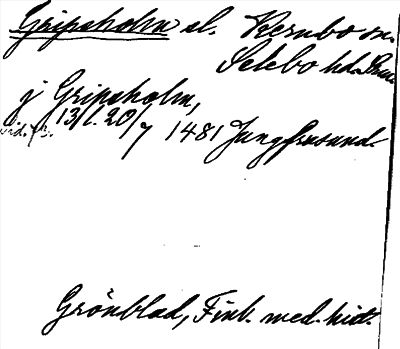 Gripsholm sl. Kernbo sn.
Selebo hd. Srm.
j Gripsholm,
vid. p. 13/1. 20/7 1481 Jungfrusund.
Grönblad, Finl. med. hist.